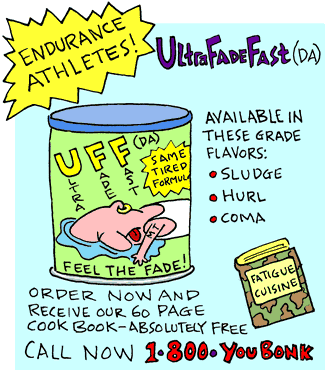 ENDURANCE
ATHLETES!
UltraFadeFast (DA)
UFF (DA)
ULTRA FADE FAST
SAME
TIRED
FORMULA
FEEL THE FADE!
AVAILABLE IN
THESE GRADE
FLAVORS:
• SLUDGE
• HURL
• COMA
FATIGUE
CUISINE
ORDER NOW AND
RECEIVE OUR 60 PAGE
COOK BOOK-ABSOLUTELY FREE
CALL NOW 1•800•YOU BONK